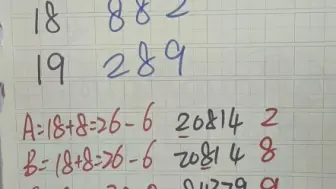 18 882
19 289
A=18+8=26-6 20814 2
B=18+8=26-6 20814 8